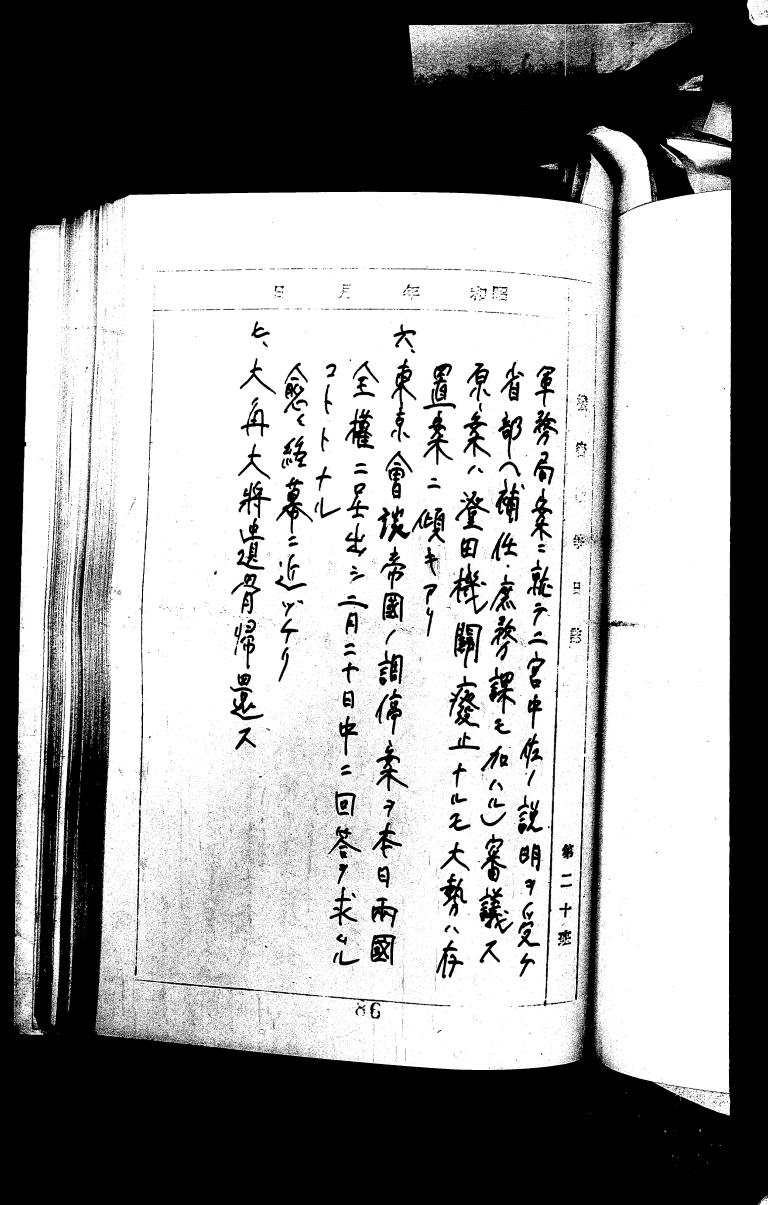 昭和 年 月 日
第二十班
軍務局案ニ就テ二宮中佐ノ説明ヲ受ケ
省部(補任、庶務課モ加ハル)審議ス
原案ハ澄田機關廢止ナルモ大勢ハ存
置案ニ傾キアリ
六、東京會談帝國ノ調停案ヲ本日兩國
全權ニ呈出シ二月二十日中ニ回答ヲ求ムル
コトトナル
愈々終幕ニ近ヅケリ
七、大角大將遺骨帰還ス
86